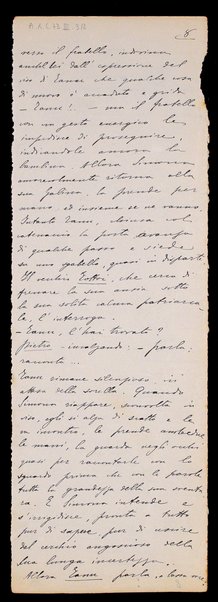 A.R.C. 77 III. 3/2
8
verso il fratello, indovina
anch'lei dall'espressione del
viso di Tanu che qualche cosa
di nuovo è accaduto e grida
— Tanu!.. — ma il fratello
con un gesto energico le
impedisce di proseguire,
indicandole ancora la
bambina. Allora Simona
amorevolmente ritorna alla
sua Gabina la prende per
mano ed insieme se ne vanno.
Intanto Tanu, chiusa col
catenaccio la porta avanza
di qualche passo e siede
su uno sgabello, quasi in disparte
che cerca di
frenare la sua ansia sotto
la sua solita calma patriarca-
le, l'interroga
— Tanu l'hai trovato?
Pietro — incalzando: — parla;
racconta...
Tanu rimane silenzioso, in
attesa della sorella. Quando
Simona riappare, sconvolta in
viso, egli si alza di scatto le va
incontro, le prende ambedue
le mani, la guarda negli occhi
quasi per raccontarle con lo
sguardo prima che con le parole
tutta la grandezza della sua sventu-
ra. E Simona intende e
s'irrigidisce, pronta a tutto
pur di sapere, pur di uscire
dal cerchio angoscioso della
sua lunga incertezza.
Allora Tanu parla, a bassa voce,